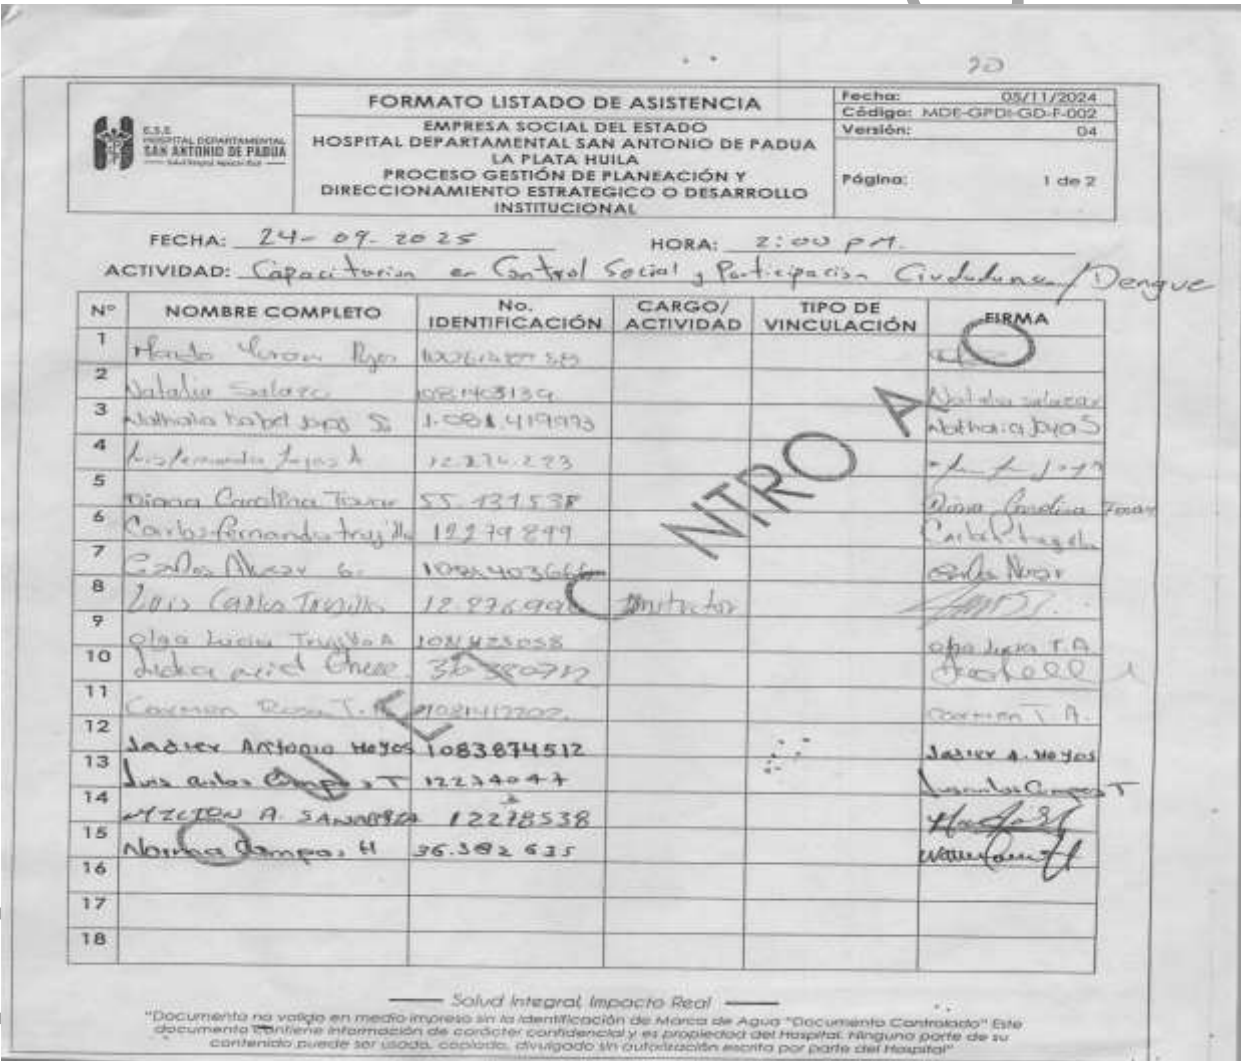 20
E.S.E
HOSPITAL DEPARTAMENTAL
SAN ANTONIO DE PADUA
Salud Integral, Impacto Real
FORMATO LISTADO DE ASISTENCIA
EMPRESA SOCIAL DEL ESTADO
HOSPITAL DEPARTAMENTAL SAN ANTONIO DE PADUA
LA PLATA HUILA
PROCESO GESTIÓN DE PLANEACIÓN Y
DIRECCIONAMIENTO ESTRATEGICO O DESARROLLO
INSTITUCIONAL
Fecha: 05/11/2024
Código: MDE-GPDI-GD-F-002
Versión: 04
Página: 1 de 2
FECHA: 24-09-2025 HORA: 2:00 pm.
ACTIVIDAD: Capacitación en Control Social y Participación Ciudadana / Dengue
N° NOMBRE COMPLETO No. IDENTIFICACIÓN CARGO/ ACTIVIDAD TIPO DE VINCULACIÓN FIRMA
1
2 Natalia Salazar 1081403139 Natalia salazar
3 Nathalia Isabel Joya S 1.081.419993 Nathalia Joya S
4 Luis fernando 12.274.223
5 Diana Carolina Tovar 55.131538 Diana Carolina Tovar
6 Carlos fernando trujillo 12279899
7 Carlos Alvear G. Carlos Alvear
8 Luis Carlos Trujillo 12.276.99
9 Olga Lucia Trujillo A olga lucia T.A.
10
11 Carmen Rosa T. A 1081417202 Carmen T. A.
12 Javier Antonio Hoyos 1083874512 Javier A. Hoyos
13 Luis carlos Campos T 12274047 Luis carlos Campos T
14 MILTON A. SANABRIA 12278538
15 Norma Campos H 36.382 635
16
17
18
NTRO A
Salud Integral, Impacto Real
"Documento no valido en medio impreso sin la identificación de Marca de Agua "Documento Controlado" Este
documento contiene información de carácter confidencial y es propiedad del Hospital. Ninguna parte de su
contenido puede ser usada, copiada, divulgado sin autorización escrita por parte del Hospital"